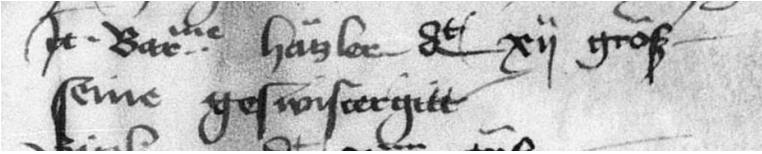 It Barᵐᵉ hätzler dt xij groß
seine geswistergitt